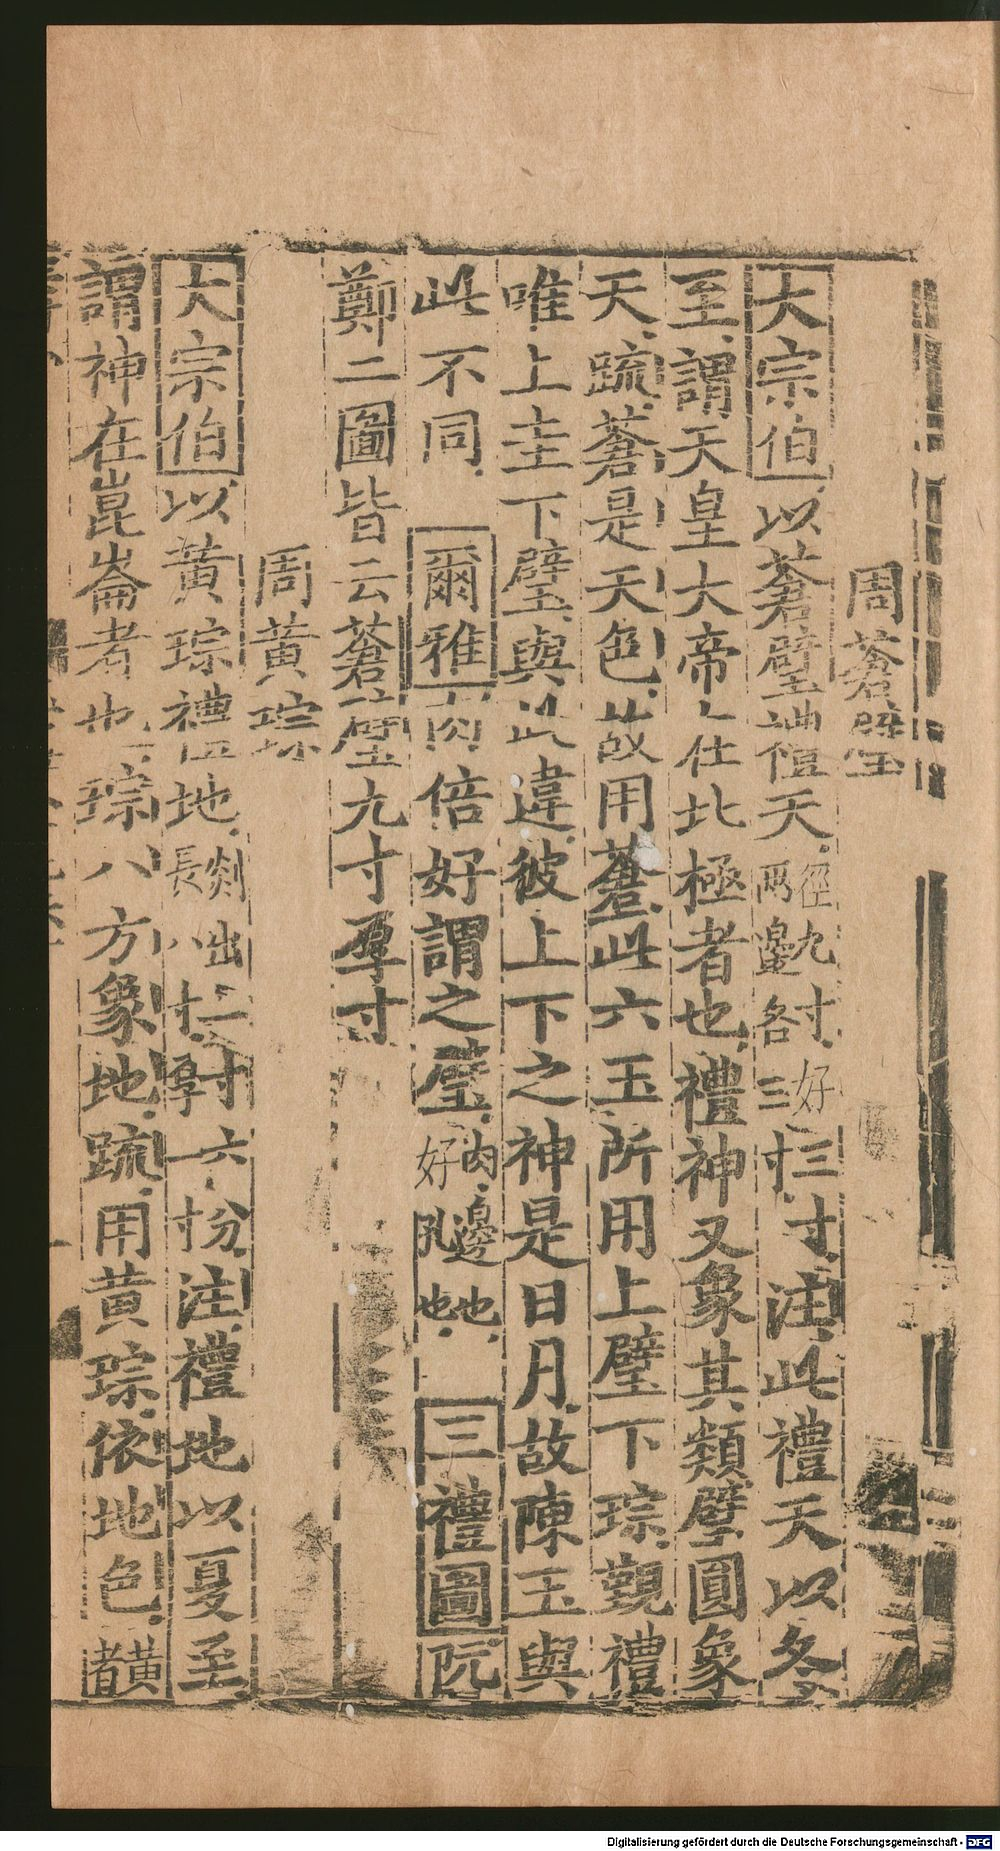 周蒼璧
大宗伯以蒼璧禮天徑九寸好三寸兩邊各三寸注此禮天以冬
至謂天皇大帝在北極者也禮神又象其類璧圓象
天疏蒼是天色故用蒼此六玉所用上璧下琮觀禮
唯上圭下璧與此違彼上下之神是日月故陳玉與
此不同爾雅肉倍好謂之璧肉邊也好孔也三禮圖阮
鄭二圖皆云蒼璧九寸厚寸
周黃琮
大宗伯以黃琮禮地剡出二寸六分長八寸厚一寸注禮地以夏至
謂神在崑崙者也琮八方象地疏用黃琮依地色黃者
Digitalisierung gefördert durch die Deutsche Forschungsgemeinschaft - DFG